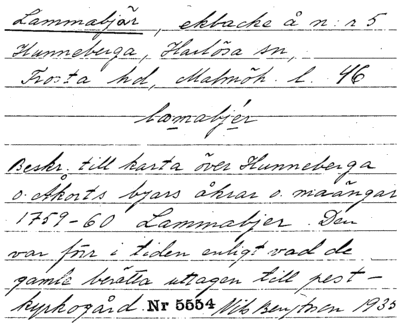 Lammabjär, ekbacke å n:r 5
Hunneberga, Harlösa sn,
Frosta hd, Malmöh. l. 46
lamabjér
Beskr. till karta över Hunneberga
o. Åkorts byars åkrar o. maängar
1759-60 Lammabjer. Den
var förr i tiden enligt vad de
gamle berätta uttagen till pest-
kyrkogård. Nr 5554 Nils Bengtsson 1935